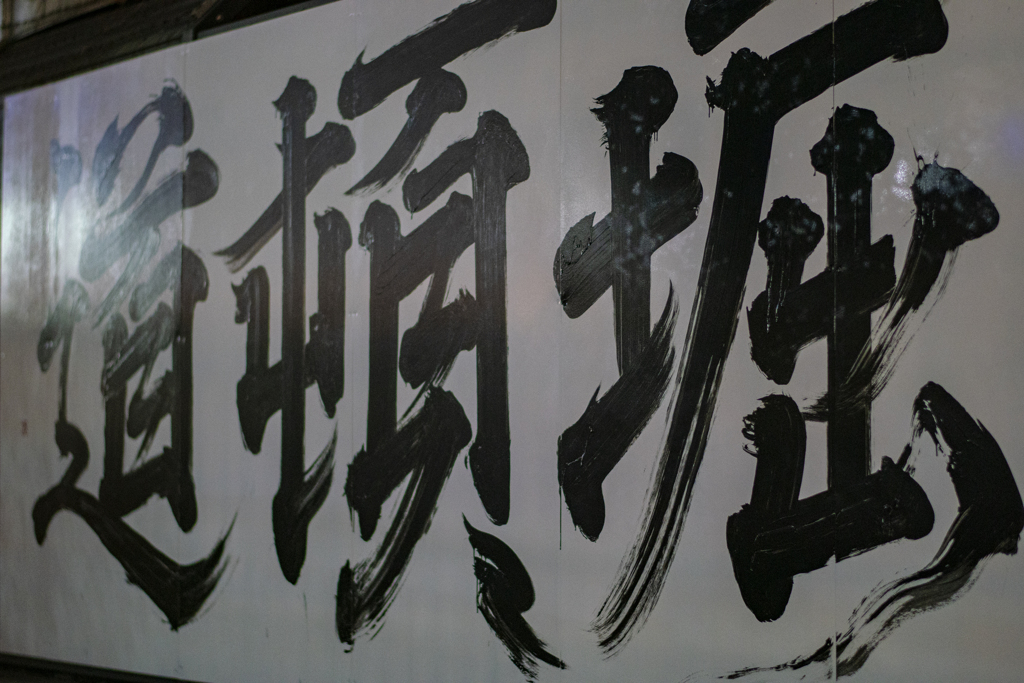 道頓堀